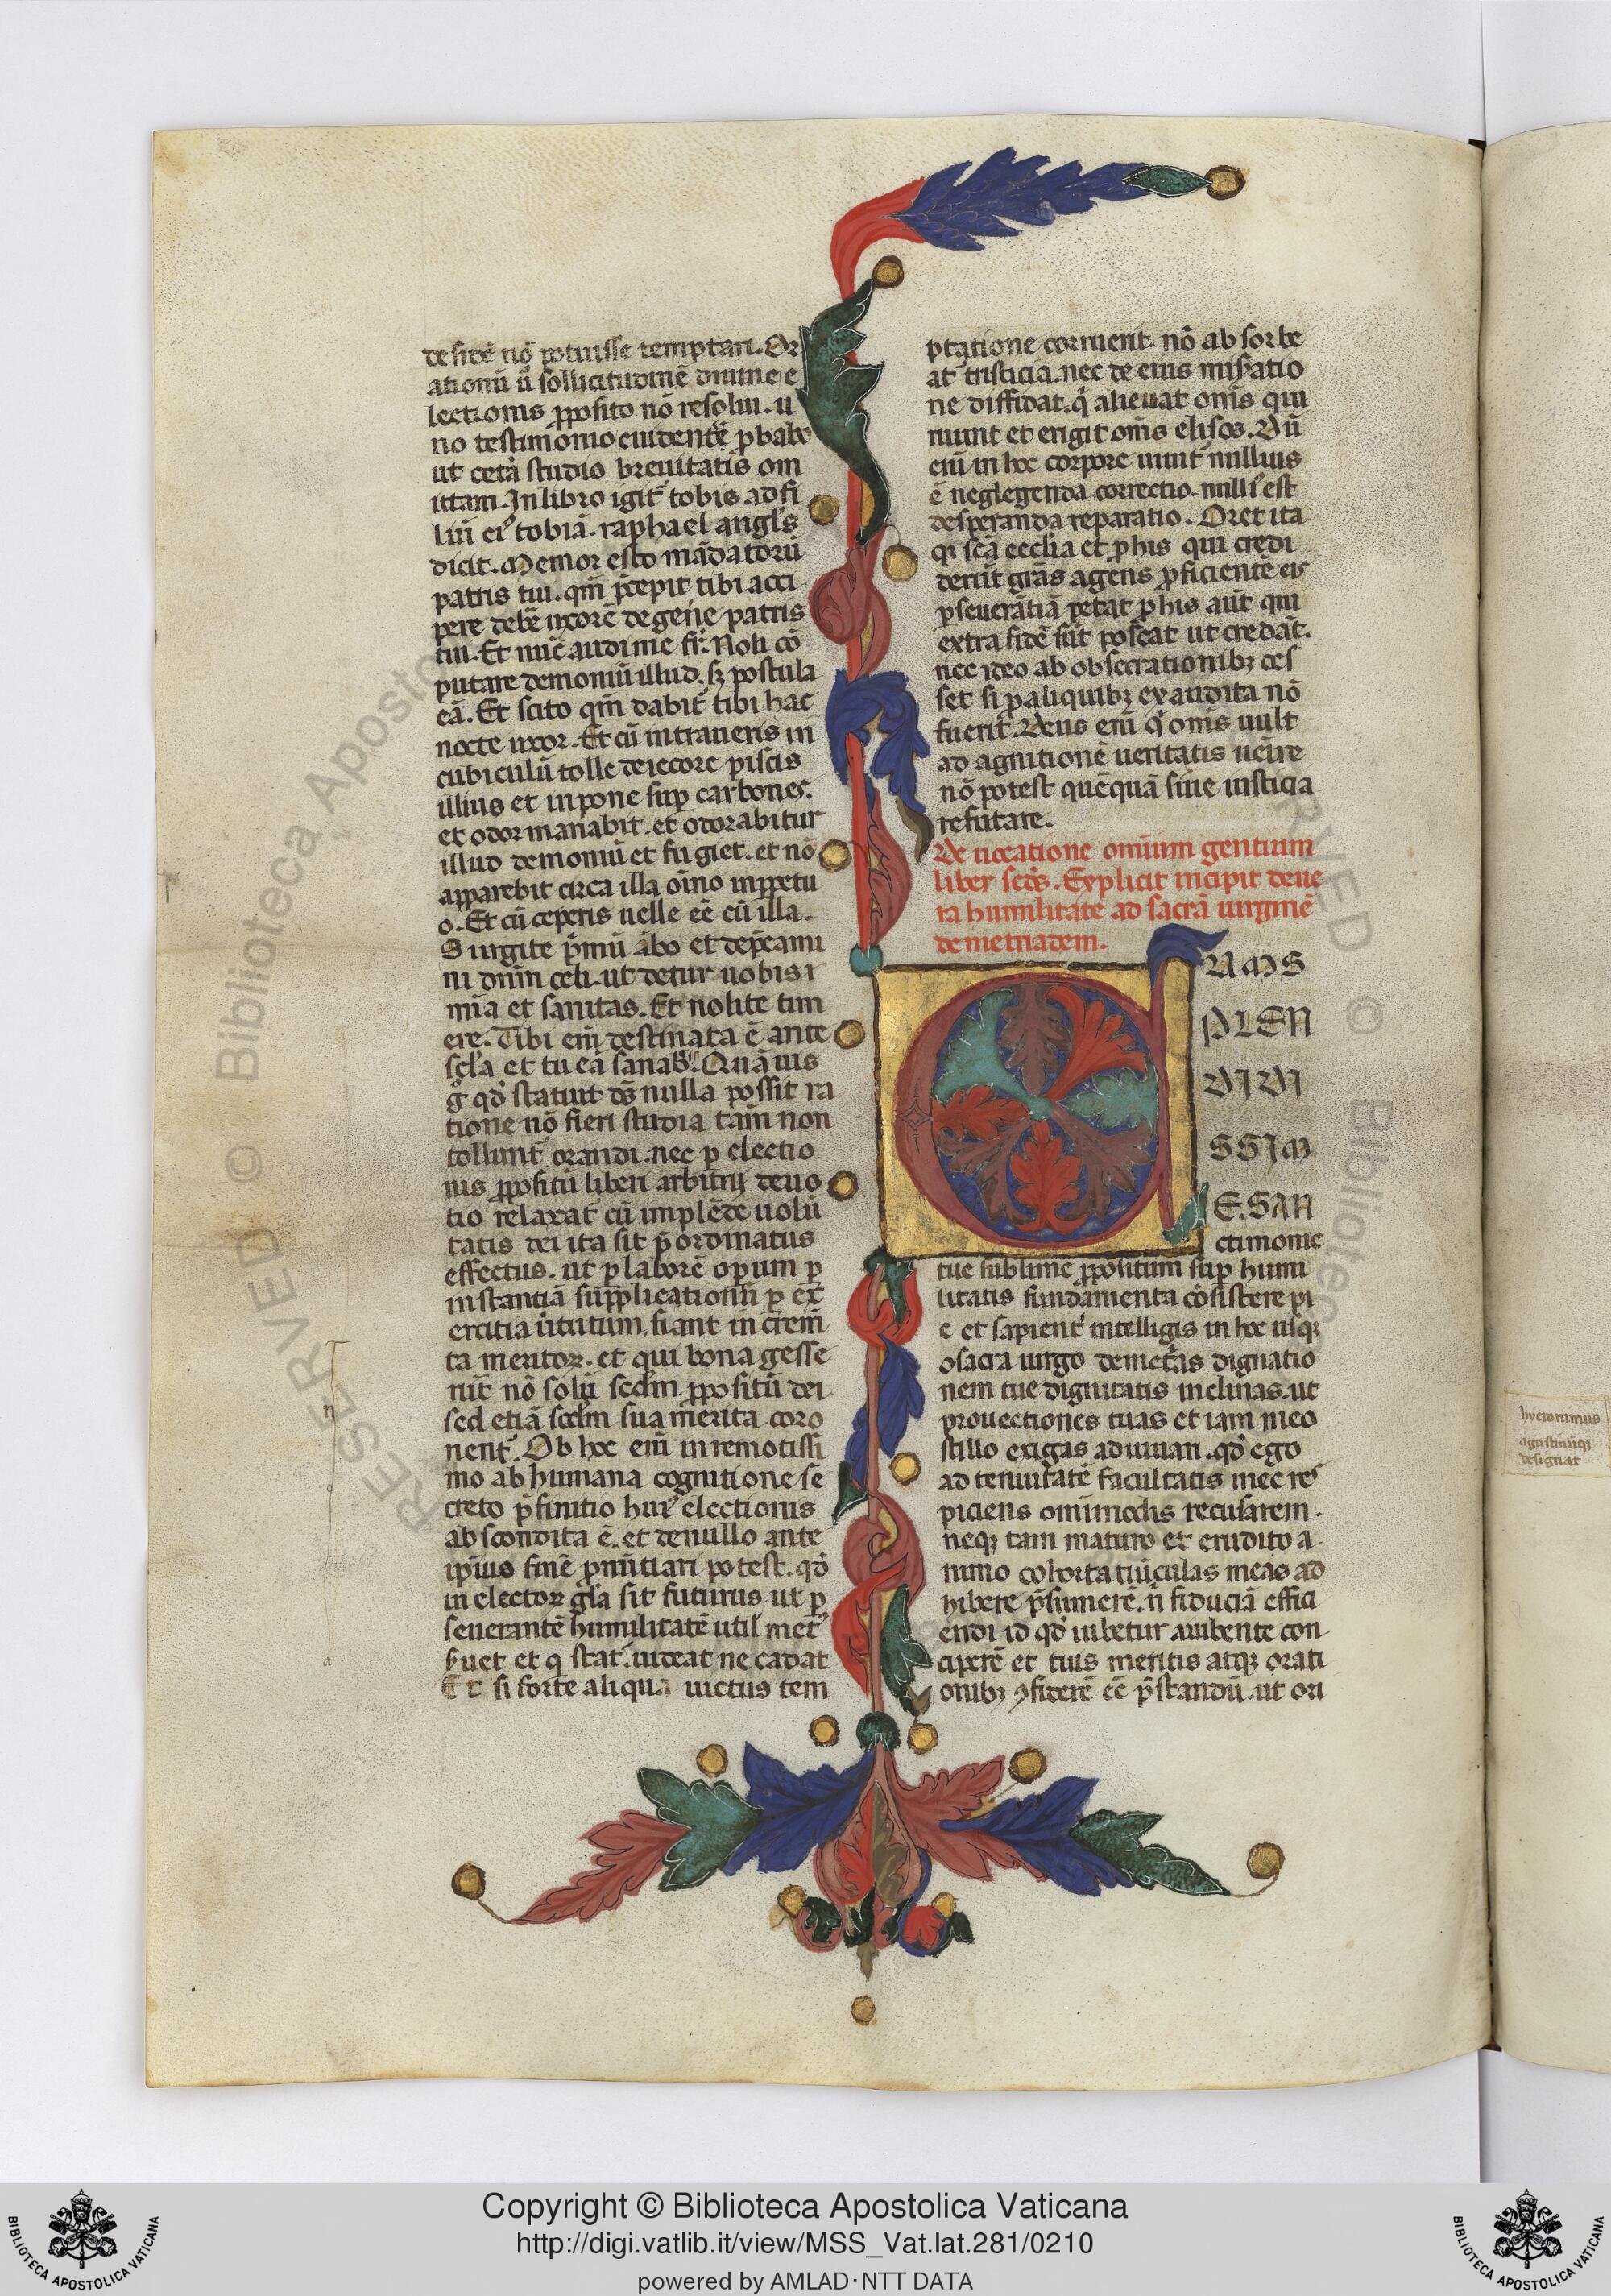 de fide nō potuisse temptari. Or
ationū ū sollicitudinē diuine e
lectionis p̱posito nō resolui. u
no testimonio euidentē ꝓbabo
ut cetā studio breuitatis om
ittam. In libro igit᷑ tobis ad fi
liū ei᷒ tobiā. raphael angls̄
dicit. Memor esto mādatorū
patris tui. qm̄ p̄cepit tibi acci
pere debē uxorē de geñe patris
tui. Et nūc audi me fr̄. Noli cō
putare demoniū illud. sꝫ postula
eā. Et scito qm̄ dabit᷑ tibi hac
nocte uxor. Et cū intraueris in
cubiculū tolle de iecore piscis
illius et inpone suꝑ carbones.
et odor manabit. et odorabitur
illud demoniū et fugiet. et nō
apparebit circa illa oīno in ꝑpetu
o. Et cū ceperis uelle eē cū illa.
Surgite p̄mū ābo et dep̄camī
ni dnm̄ celi. ut detur uobis i
mīa et sanitas. Et nolite tim
ere. Tibi enī destinata ē ante
scl̄a et tu eā sanab᷒. Quāuis
g̊ qd̓ statuit ds̄ nulla possit ra
tione nō fieri studia tam̄ non
tollunt᷑ orandi. nec ꝑ electio
nis ꝓpositū liberi arbitrij deuo
tio relaxat᷑ cū implēde uolū
tatis dei ita sit p̄ordinatus
effectus. ut ꝑ laborē oꝑum ꝑ
instantiā supplicationū ꝑ ex
ercitia ūtutum. fiant increm̄
ta meritoꝝ. et qui bona gesse
rūt nō solū scdm̄ ꝓpositū dei
sed etiā scdm̄ sua merita coro
nent᷑. Ob hoc enī in remotissi
mo ab humana cognitione se
creto p̄finitio hui᷒ electionis
abscondita ē. et de nullo ante
ip̄ius finē ꝓnūtiari potest. qd̓
in electoꝝ gl̄a sit futurus. ut ꝑ
seuerantē humilitatē util᷒ met᷒
ẜuet et q̱ stat. uideat ne cadat
Et si forte aliqua uictus tem
ptatione corruerit. nō absorbe
at᷑ tristicia. nec de eius mis̓atio
ne diffidat. q̇ alleuat om̄s qui
ruunt et erigit om̄s elisos. Dū
enī in hoc corpore uiuit᷑ nullius
ē neglegenda correctio. nulli᷒ est
desperanda reparatio. Oret ita
qꝫ scā ecclīa et ꝓ his qui credi
derūt grās agens ꝓficientē eis
ꝑseuerātiā petat ꝓ his aūt qui
extra fidē sūt poscat ut credāt.
nec ideo ab obsecrationibꝫ ces
set si ꝓ aliquibꝫ exaudita nō
fuerit. Deus enī q̇ om̄s uult
ad agnitionē ueritatis ueīre
nō potest quēquā sine iusticia
refutare.
De uocatione omīum gentium
liber scds̄. Explicit incipit de ue
ra humilitate ad sacrā uirginē
demetriadem.
E
AMS
PLEN
DIDI
SSIM
E. SAN
ctimonie
tue sublime ꝓpositum suꝑ humi
litatis fundamenta cōsistere pi
e et sapient᷑ intelligis in hoc usqꝫ
o sacra uirgo demet̓as dignatio
nem tue dignitatis inclinas. ut
prouectiones tuas etiam meo
stillo exigas adiuuari. qd̓ ego
ad tenuitatē facultatis mee res
piciens omīmodis recusarem.
neqꝫ tam maturo et erudito a
nimo cohortatiūculas meas ad
hibere p̄sumerē. ñ fiduciā effici
endi id qd̓ iubetur a iubente con
ciperē et tuis meritis atqꝫ orati
onibꝫ ꝯfiderē eē p̄standū. ut ou
hyeronimus
agustinūqꝫ
designat
RESERVED © Biblioteca Aposto
RVED © Biblioteca
Copyright © Biblioteca Apostolica Vaticana
http://digi.vatlib.it/view/MSS_Vat.lat.281/0210
powered by AMLAD·NTT DATA
BIBLIOTECA APOSTOLICA VATICANA
BIBLIOTECA APOSTOLICA VATICANA